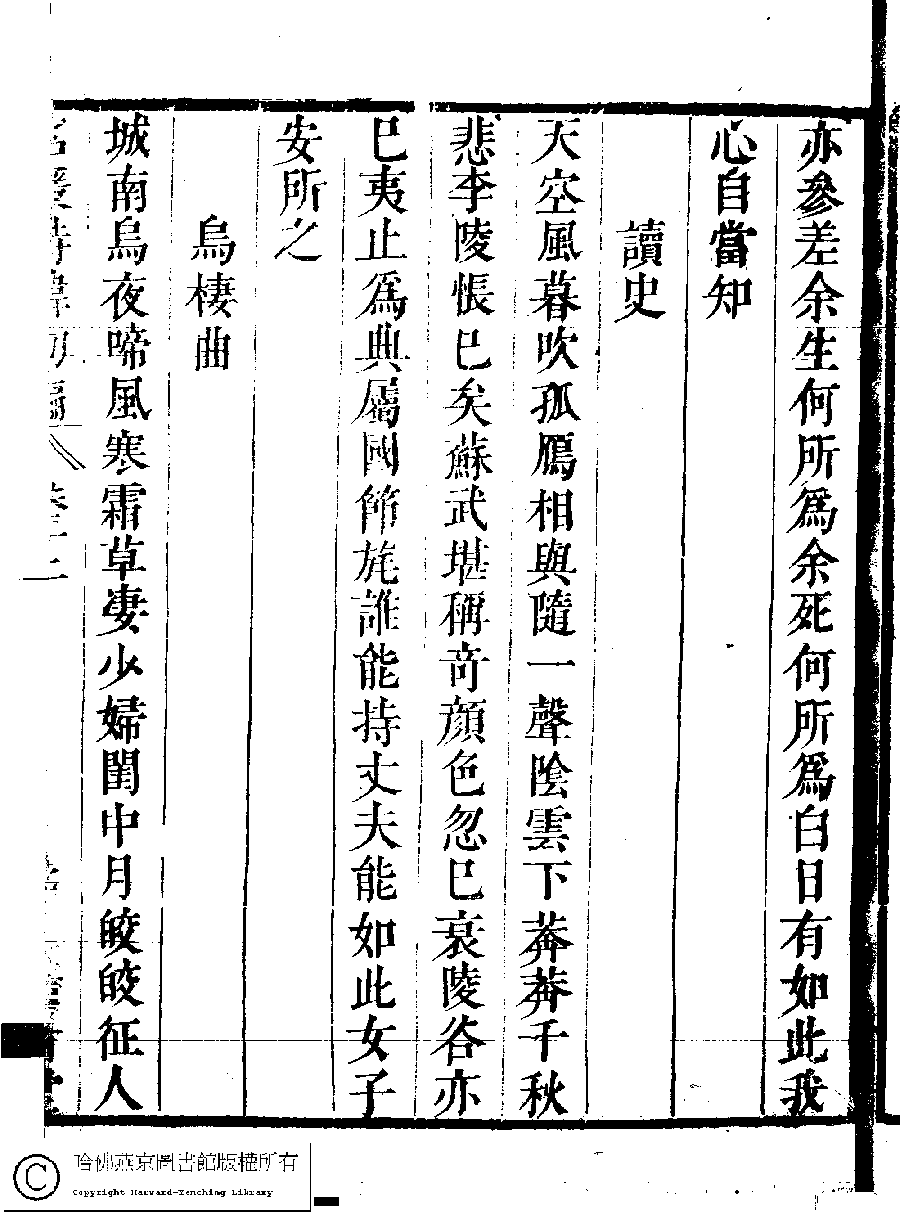 亦參差余生何所爲余死何所爲白日有如此我
心自當知
讀史
天空風暮吹孤鴈相與隨一聲陰雲下莽莽千秋
悲李陵悵已矣蘇武堪稱奇顔色忽已衰陵谷亦
已夷止爲典屬國節旄誰能持丈夫能如此女子
安所之
烏棲曲
城南烏夜啼風寒霜草凄少婦閨中月皎皎征人
名媛詩緯初編 卷十二
哈佛燕京圖書館版權所有
Copyright Harvard-Yenching Library